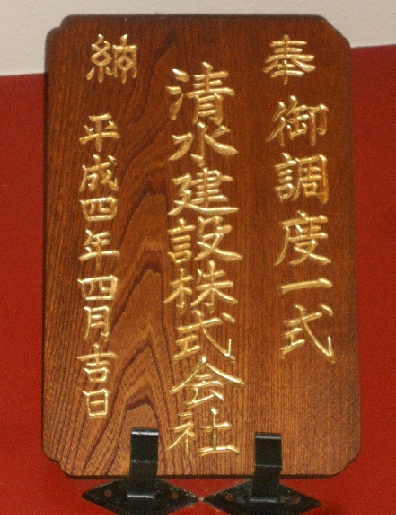 奉 御調度一式
清水建設株式会社
納 平成四年四月吉日